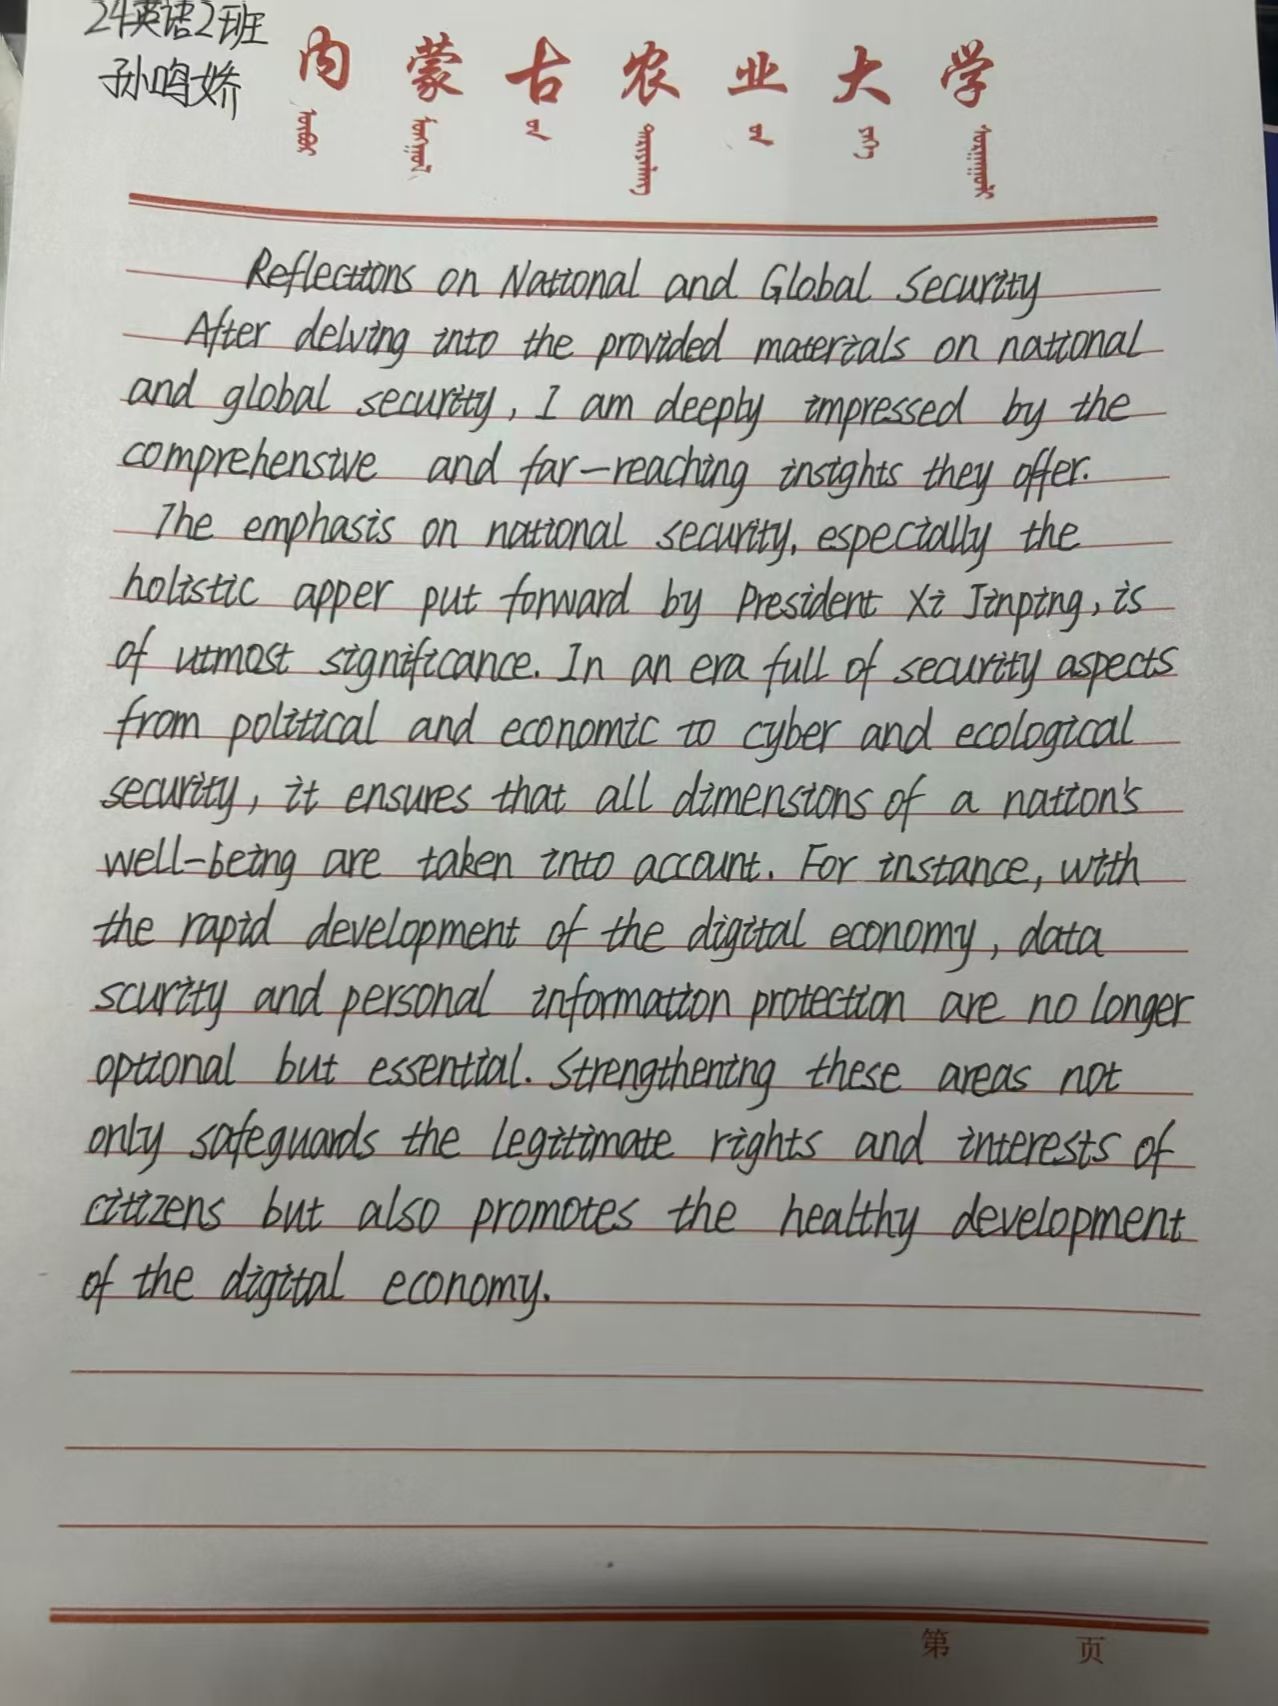 24英语2班
孙鸣娇
内蒙古农业大学
Reflections on National and Global Security
After delving into the provided materials on national
and global security, I am deeply impressed by the
comprehensive and far-reaching insights they offer.
The emphasis on national security, especially the
holistic apper put forward by President Xi Jinping, is
of utmost significance. In an era full of security aspects
from political and economic to cyber and ecological
security, it ensures that all dimensions of a nation's
well-being are taken into account. For instance, with
the rapid development of the digital economy, data
scurity and personal information protection are no longer
optional but essential. Strengthening these areas not
only safeguards the legitimate rights and interests of
citizens but also promotes the healthy development
of the digital economy.
第 页